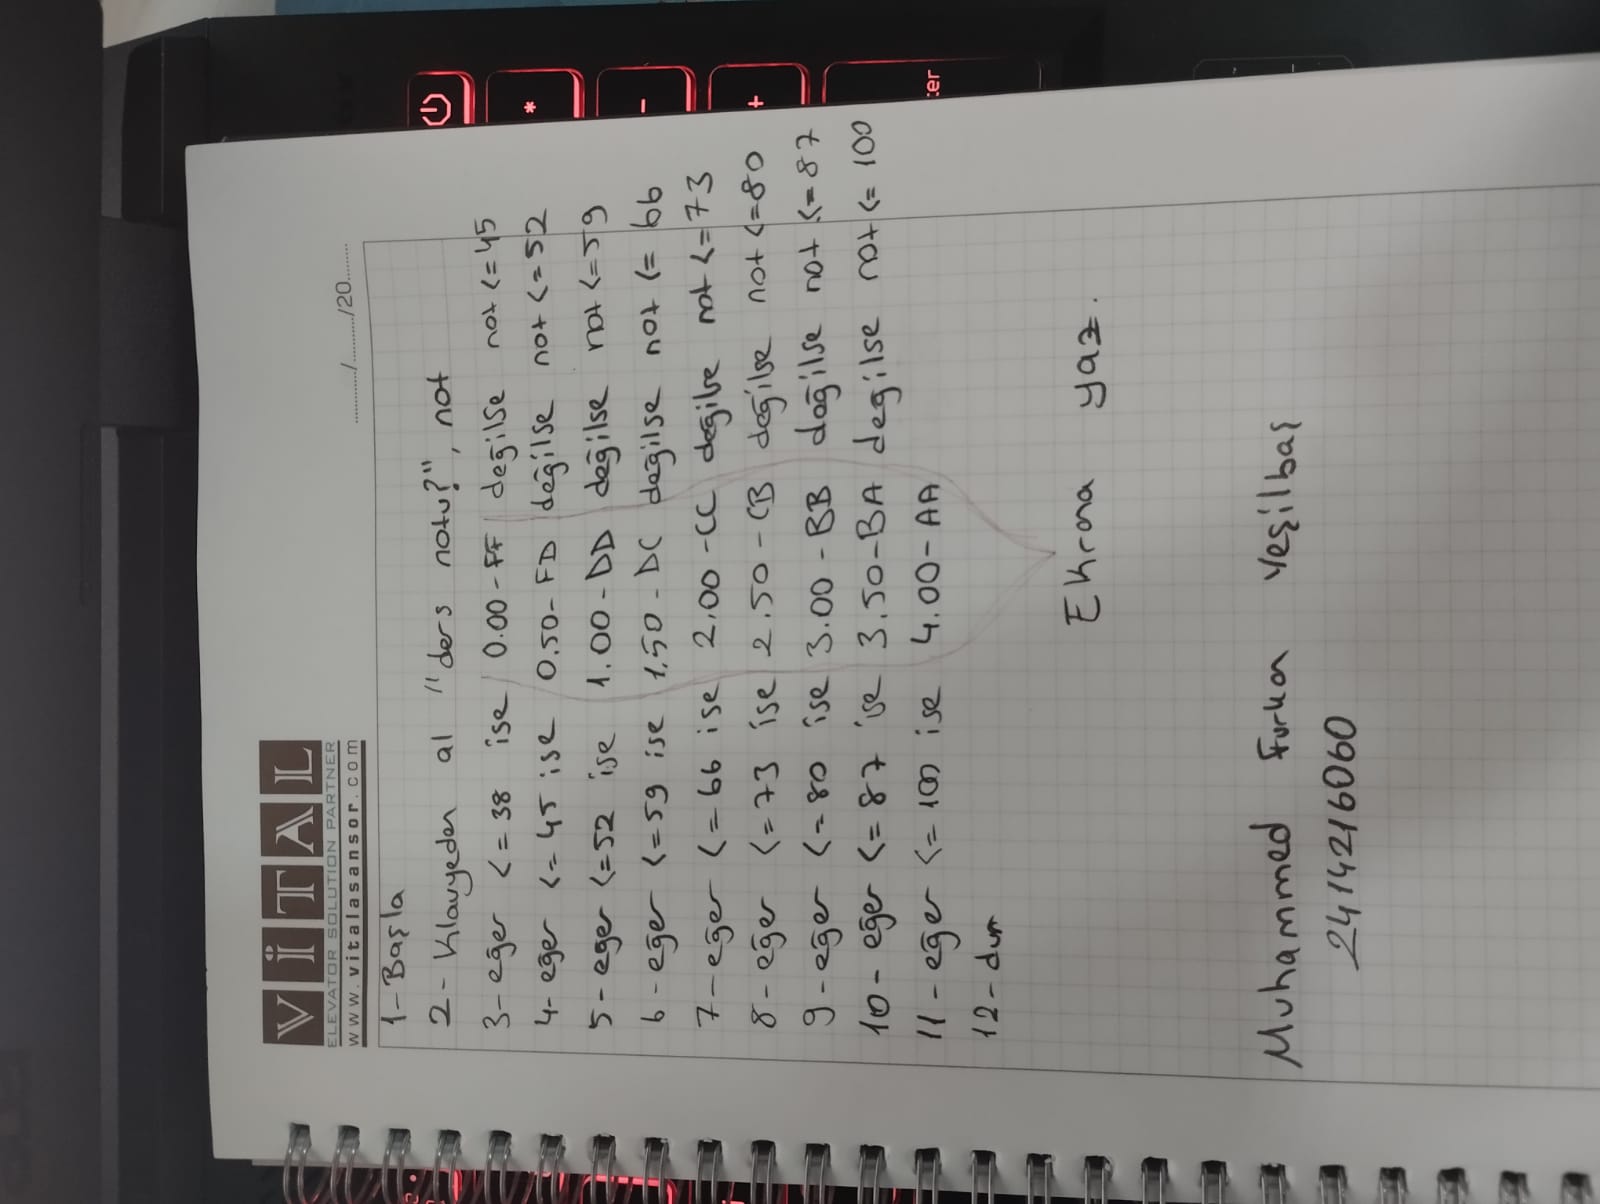 VİTAL
ELEVATOR SOLUTION PARTNER
www.vitalasansor.com
........../........../20..........
1-Başla
2-Klavyeden al "ders notu?", not
3-eğer <=38 ise 0.00-FF değilse not <=45
4-eğer <=45 ise 0.50-FD değilse not <=52
5-eğer <=52 ise 1.00-DD değilse not <=59
6-eğer <=59 ise 1.50-DC değilse not <=66
7-eğer <=66 ise 2.00-CC değilse not <=73
8-eğer <=73 ise 2.50-CB değilse not <=80
9-eğer <=80 ise 3.00-BB değilse not <=87
10-eğer <=87 ise 3.50-BA değilse not <=100
11-eğer <=100 ise 4.00-AA
12-dur
Ekrana yaz.
Muhammed Furkan Yeşilbaş
24142216060
*
-
+
ter